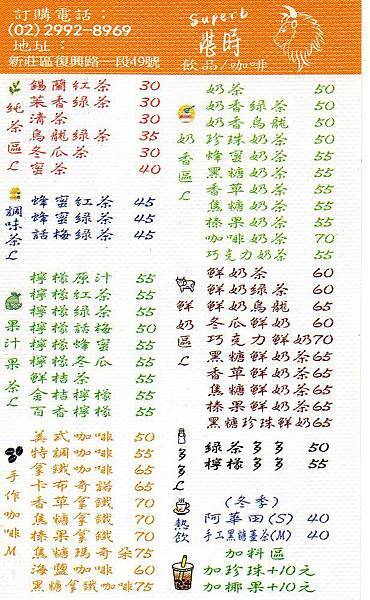 訂購電話：
(02) 2992-8969
地址：
新莊區復興路一段49號
Superb
湛時
飲品/咖啡
純茶區L
錫蘭紅茶 30
茉香綠茶 30
清茶 30
烏龍綠茶 35
冬瓜茶 30
蜜茶 40
調味茶L
蜂蜜紅茶 45
蜂蜜綠茶 45
話梅綠茶 45
果汁果茶L
檸檬原汁 55
檸檬紅茶 55
檸檬綠茶 55
檸檬話梅 50
檸檬蜂蜜 55
檸檬冬瓜 55
鮮桔茶 55
金桔檸檬 55
百香檸檬 55
手作咖啡M
美式咖啡 50
特調咖啡 55
拿鐵咖啡 65
卡布奇諾 65
香草拿鐵 70
焦糖拿鐵 70
榛果拿鐵 70
焦糖瑪奇朵 75
海鹽咖啡 60
黑糖拿鐵咖啡 75
奶香區L
奶茶 50
奶香綠茶 50
奶香烏龍 50
珍珠奶茶 50
蜂蜜奶茶 55
黑糖奶茶 55
香草奶茶 55
焦糖奶茶 55
榛果奶茶 55
咖啡奶茶 70
巧克力奶茶 55
鮮奶區L
鮮奶茶 60
鮮奶綠茶 60
鮮奶烏龍 65
冬瓜鮮奶 60
巧克力鮮奶 70
黑糖鮮奶茶 65
香草鮮奶茶 65
焦糖鮮奶茶 65
榛果鮮奶茶 65
黑糖珍珠鮮奶 60
多多L
綠茶多多 50
檸檬多多 55
熱飲
(冬季)
阿華田(S) 40
手工黑糖薑茶(M) 40
加料區
加珍珠+10元
加椰果+10元